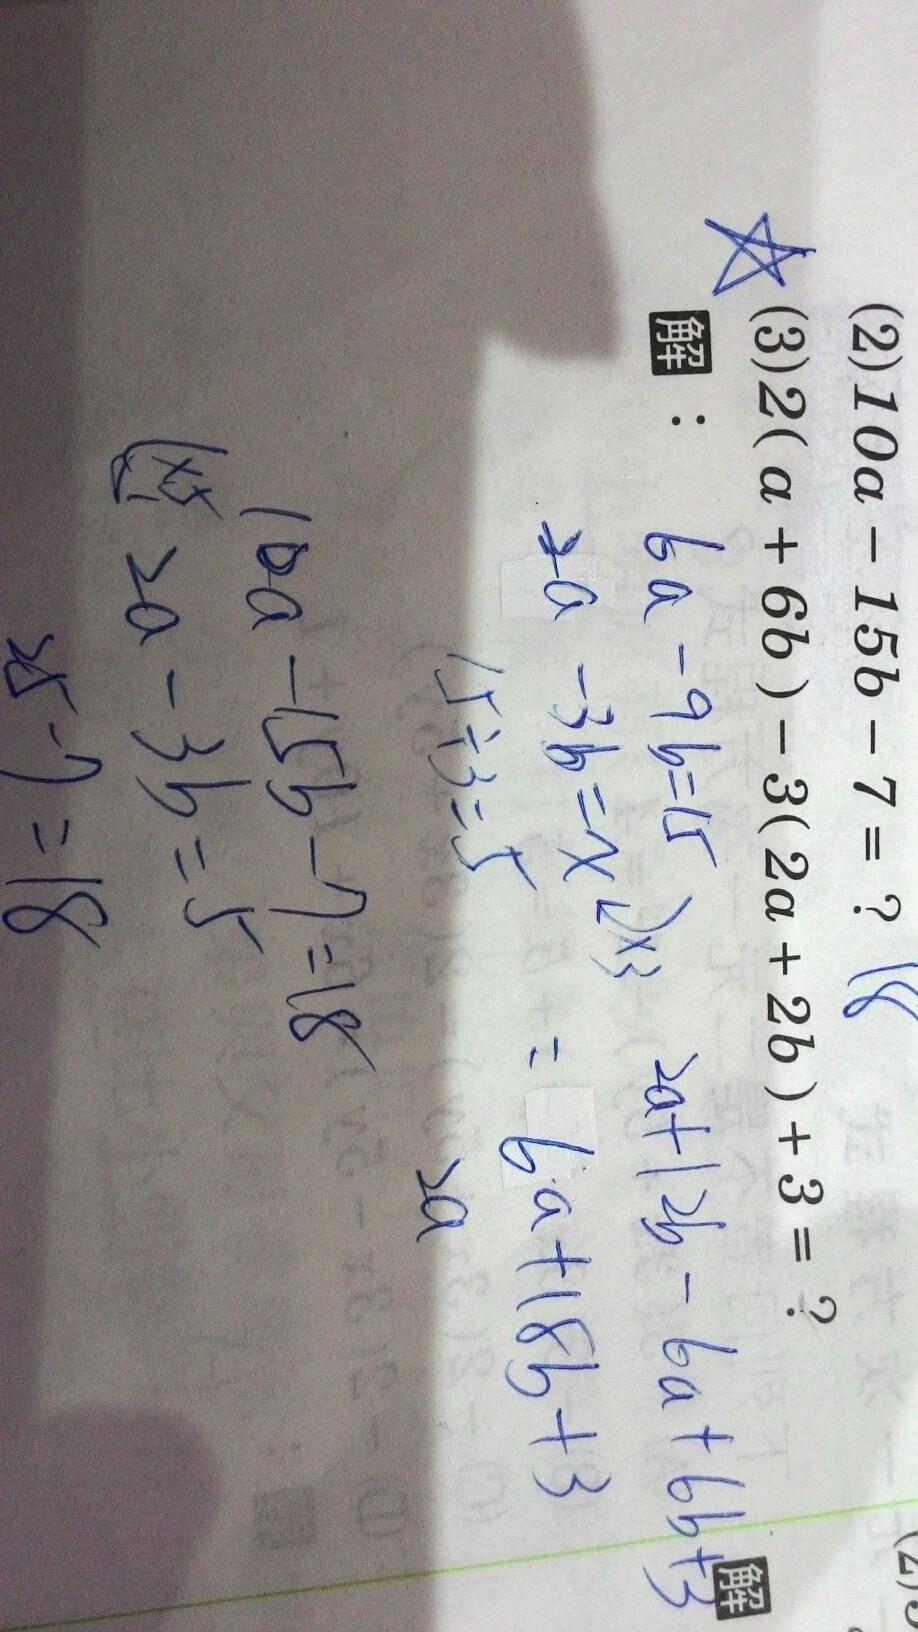 (2)10a－15b－7＝? 18
(3)2(a＋6b)－3(2a＋2b)＋3＝?
解：
6a－9b＝15
2a－3b＝x
)×3
15÷3＝5
10a－15b－7＝18
2a－3b＝5
25－7＝18
2a+12b－6a+6b+3
＝6a+18b+3
2a
解